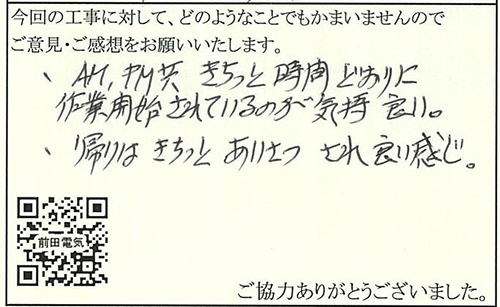 今回の工事に対して、どのようなことでもかまいませんので
ご意見・ご感想をお願いいたします。
、AM，PM共 きちっと 時間 どおりに
作業開始されているのが 気持 良い。
、帰りは きちっと あいさつ され 良い感じ。
前田電気
ご協力ありがとうございました。